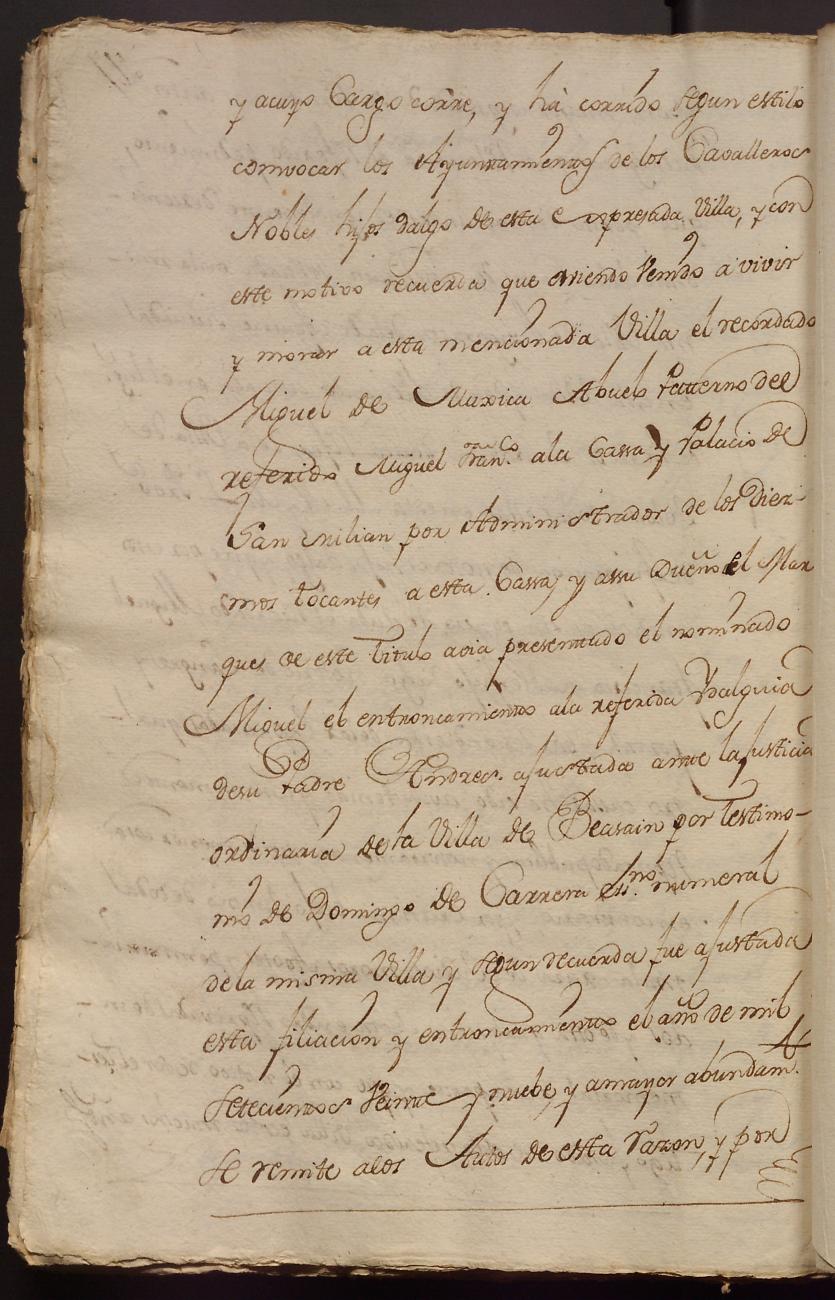 y acuyo Cargo corre, y há corrido segun estilo
convocar los Ayuntamientos de los Cavalleros
Nobles hijos dalgo de esta expresada Villa, y con
este motivo recuerda que aviendo Venido a vivir
y morar a esta mencionada Villa el recordado
Miguel de Muxica Abuelo Paterno del
referido Miguel Franco. ala Cassa y Palacio de
San Milian por Administrador de los Diez-
mos tocantes a esta Cassa, y assu Dueño el Mar
ques de este Titulo avia presentado el nominado
Miguel el entroncamiento ala referida Ydalguia
desu Padre Andres. ajustada ante la Justicia
ordinaria de la Villa de Beasain por Testimo-
nio de Domingo de Carrera essno. numeral
dela misma Villa y segun recuerda fue ajustada
esta filiacion y entroncamiento el año de mil
setecientos Veinte y nuebe, y amayor abundamto.
se remite alos Autos de esta razon, y por